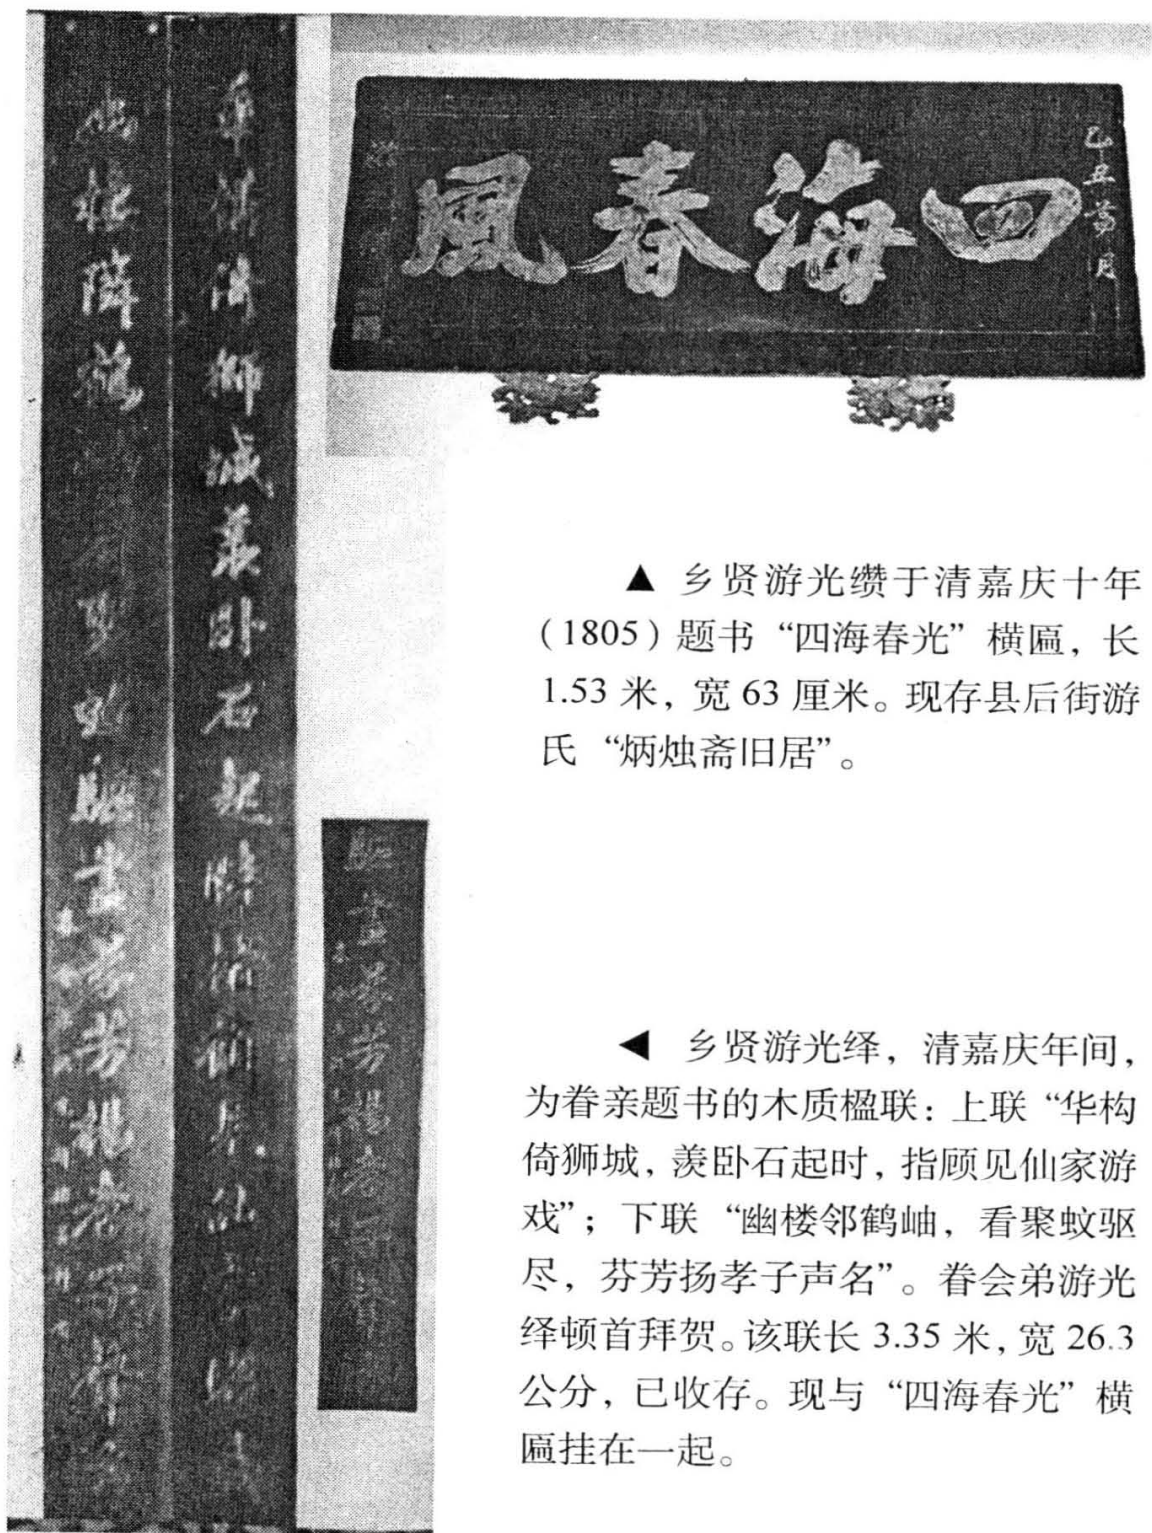 四海春風
乙丑
獅城羨卧石起時
鄰鶴
驅盡芬芳揚孝
驅盡芬芳揚孝
▲ 乡贤游光缵于清嘉庆十年
（1805）题书“四海春光”横匾，长
1.53 米，宽 63 厘米。现存县后街游
氏“炳烛斋旧居”。
◀ 乡贤游光绎，清嘉庆年间，
为眷亲题书的木质楹联：上联“华构
倚狮城，羡卧石起时，指顾见仙家游
戏”；下联“幽楼邻鹤岫，看聚蚊驱
尽，芬芳扬孝子声名”。眷会弟游光
绎顿首拜贺。该联长 3.35 米，宽 26.3
公分，已收存。现与“四海春光”横
匾挂在一起。